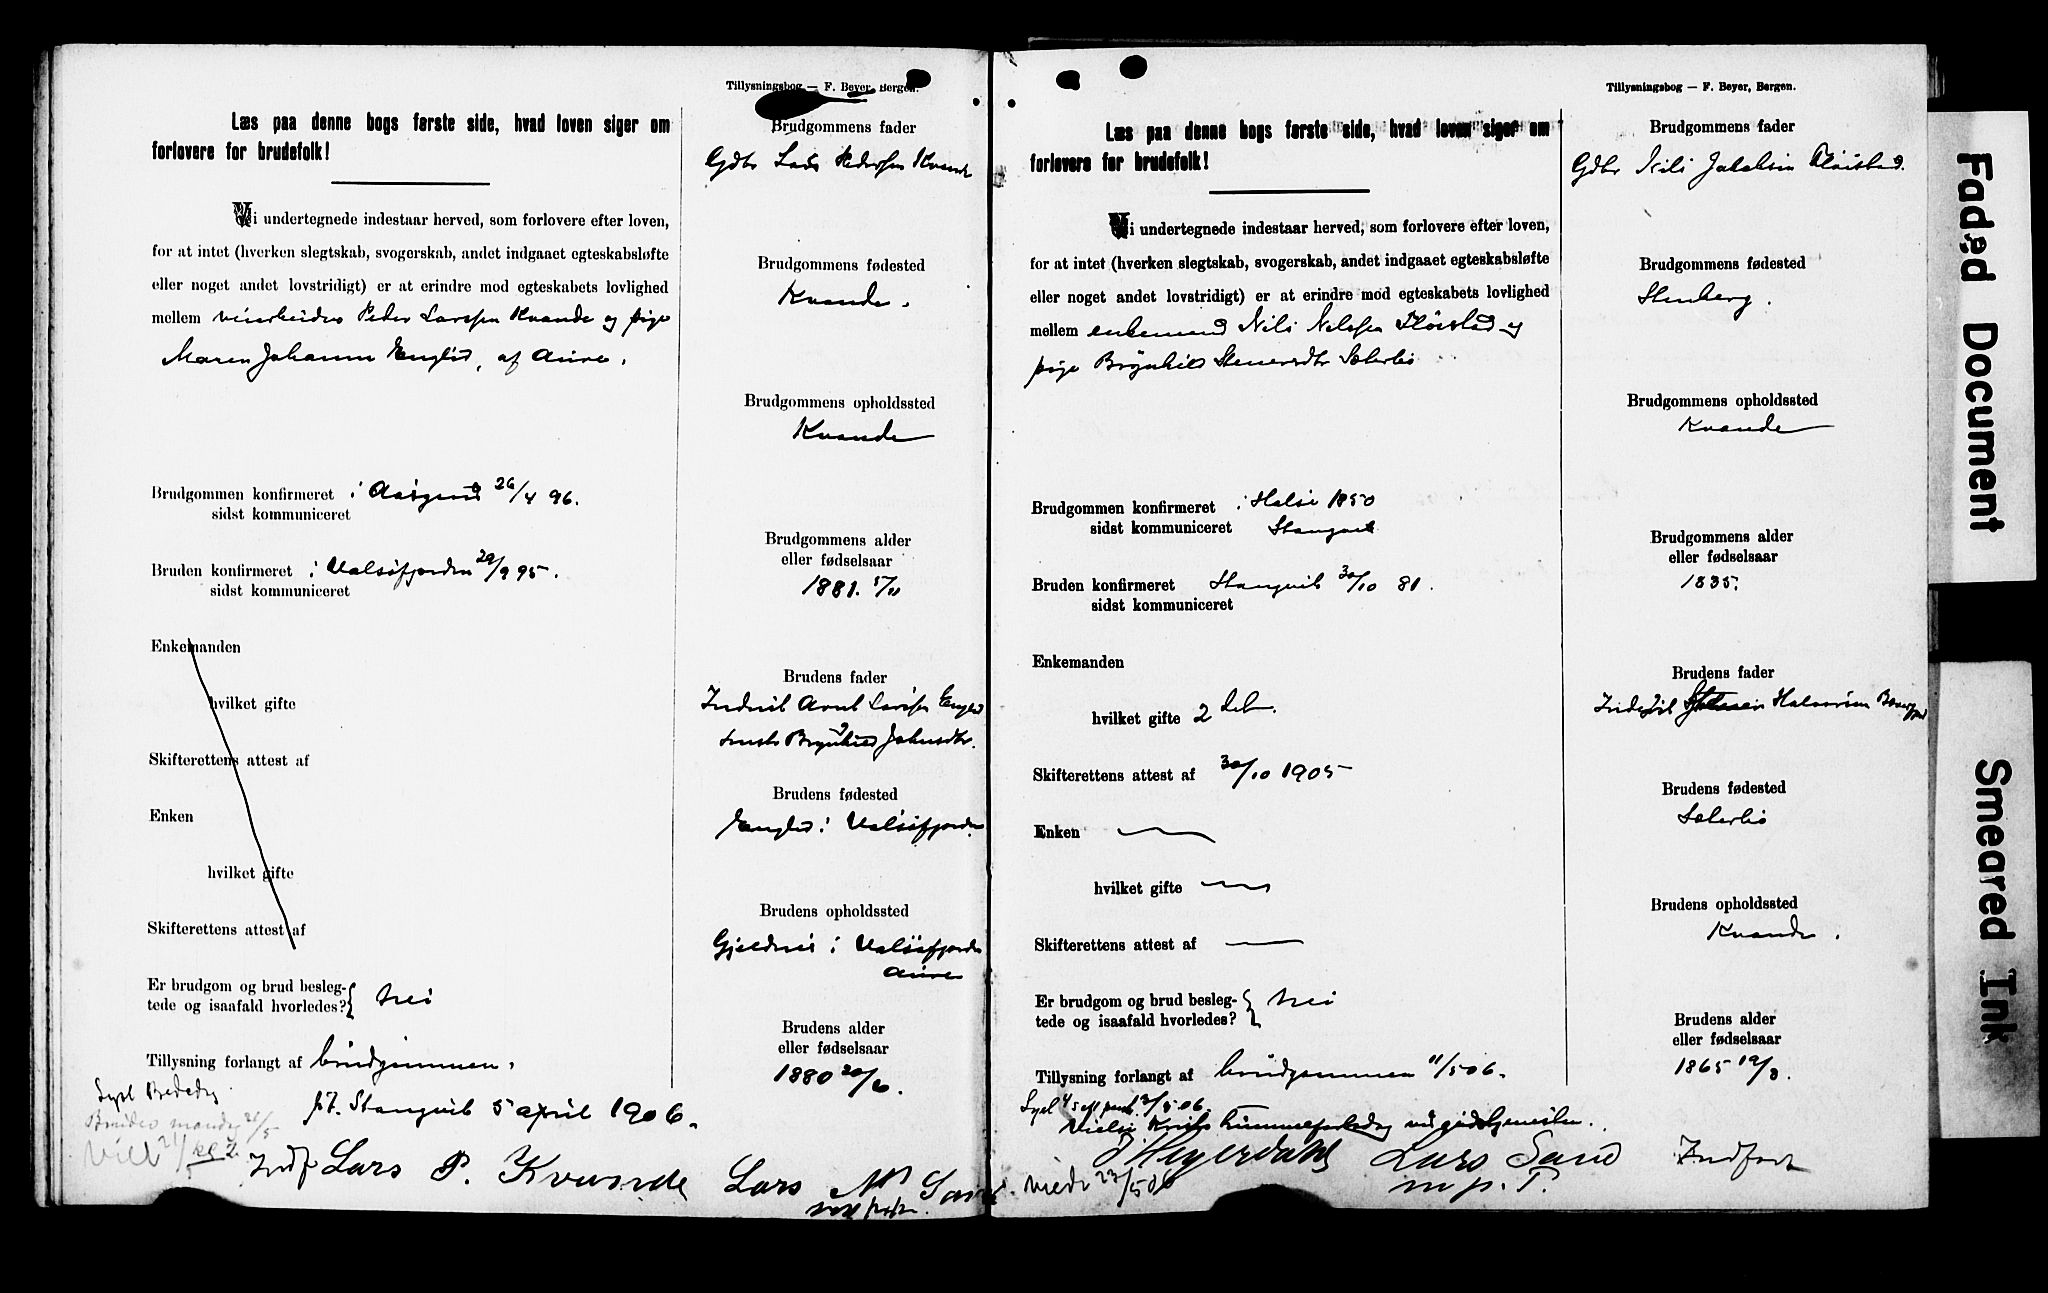 Tillysningsbog — F. Beyer, Bergen.
Læs paa denne bogs første side, hvad loven siger om
forlovere for brudefolk!
Vi undertegnede indestaar herved, som forlovere efter loven,
for at intet (hverken slegtskab, svogerskab, andet indgaaet egteskabsløfte
eller noget andet lovstridigt) er at erindre mod egteskabets lovlighed
mellem veiarbeider Peder Larssen Kvande og pige
Maren Johanna Englid, af Aure.
Brudgommen konfirmeret i Aasgaard 26/4 96.
sidst kommuniceret
Bruden konfirmeret i Valsøfjorden 29/9 95.
sidst kommuniceret
Enkemanden
hvilket gifte
Skifterettens attest af
Enken
hvilket gifte
Skifterettens attest af
Er brudgom og brud besleg-
tede og isaafald hvorledes? } nei
Tillysning forlangt af brudgommen.
p.t. Stangvik 5 april 1906.
Lyst
Lars P. Kvande Lars
Brudgommens fader
Gdbr Lars Pedersen Kvande
Brudgommens fødested
Kvande.
Brudgommens opholdssted
Kvande
Brudgommens alder
eller fødselsaar
1881.
Brudens fader
Arnt Larssen Englid
Brynhild Johnsdtr.
Brudens fødested
Englid i Valsøfjorden
Brudens opholdssted
Gjeldnes i Valsøfjorden
Aure
Brudens alder
eller fødselsaar
1880
Tillysningsbog — F. Beyer, Bergen.
Læs paa denne bogs første side, hvad loven siger om
forlovere for brudefolk!
Vi undertegnede indestaar herved, som forlovere efter loven,
for at intet (hverken slegtskab, svogerskab, andet indgaaet egteskabsløfte
eller noget andet lovstridigt) er at erindre mod egteskabets lovlighed
mellem enkemand Nils Nilssen Fløistad og
pige Brynhild Stenersdtr Sæterbø
Brudgommen konfirmeret i Halse 1850
sidst kommuniceret Stangvik
Bruden konfirmeret Stangvik 30/10 81.
sidst kommuniceret
Enkemanden
hvilket gifte 2det.
Skifterettens attest af 30/10 1905
Enken
hvilket gifte
Skifterettens attest af
Er brudgom og brud besleg-
tede og isaafald hvorledes? } nei
Tillysning forlangt af brudgommen 11/5 06.
Lyst
Viede Kristi himmelfartsdag
Lars Sand
m. p. P.
viede 23/5 06
Brudgommens fader
Gdbr Nils Jakobsen Fløistad.
Brudgommens fødested
Stenberg.
Brudgommens opholdssted
Kvande
Brudgommens alder
eller fødselsaar
1835.
Brudens fader
Halvorsen
Brudens fødested
Sæterbø
Brudens opholdssted
Kvande.
Brudens alder
eller fødselsaar
1865 19/8.
Faded Document
Smeared Ink